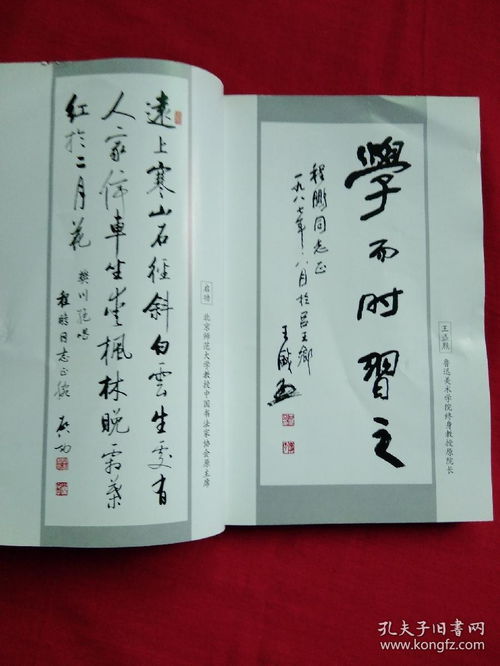 遠上寒山石徑斜白雲生處有
人家停車坐愛楓林晚霜葉
紅於二月花 樊川絶唱
程鹏同志正腕 启功
启功 北京师范大学教授中国书法家协会原主席
學而时習之
程鹏同志正
一九八七年八月於
王盛烈
王盛烈 鲁迅美术学院终身教授原院长
孔夫子旧书网
www.kongfz.com